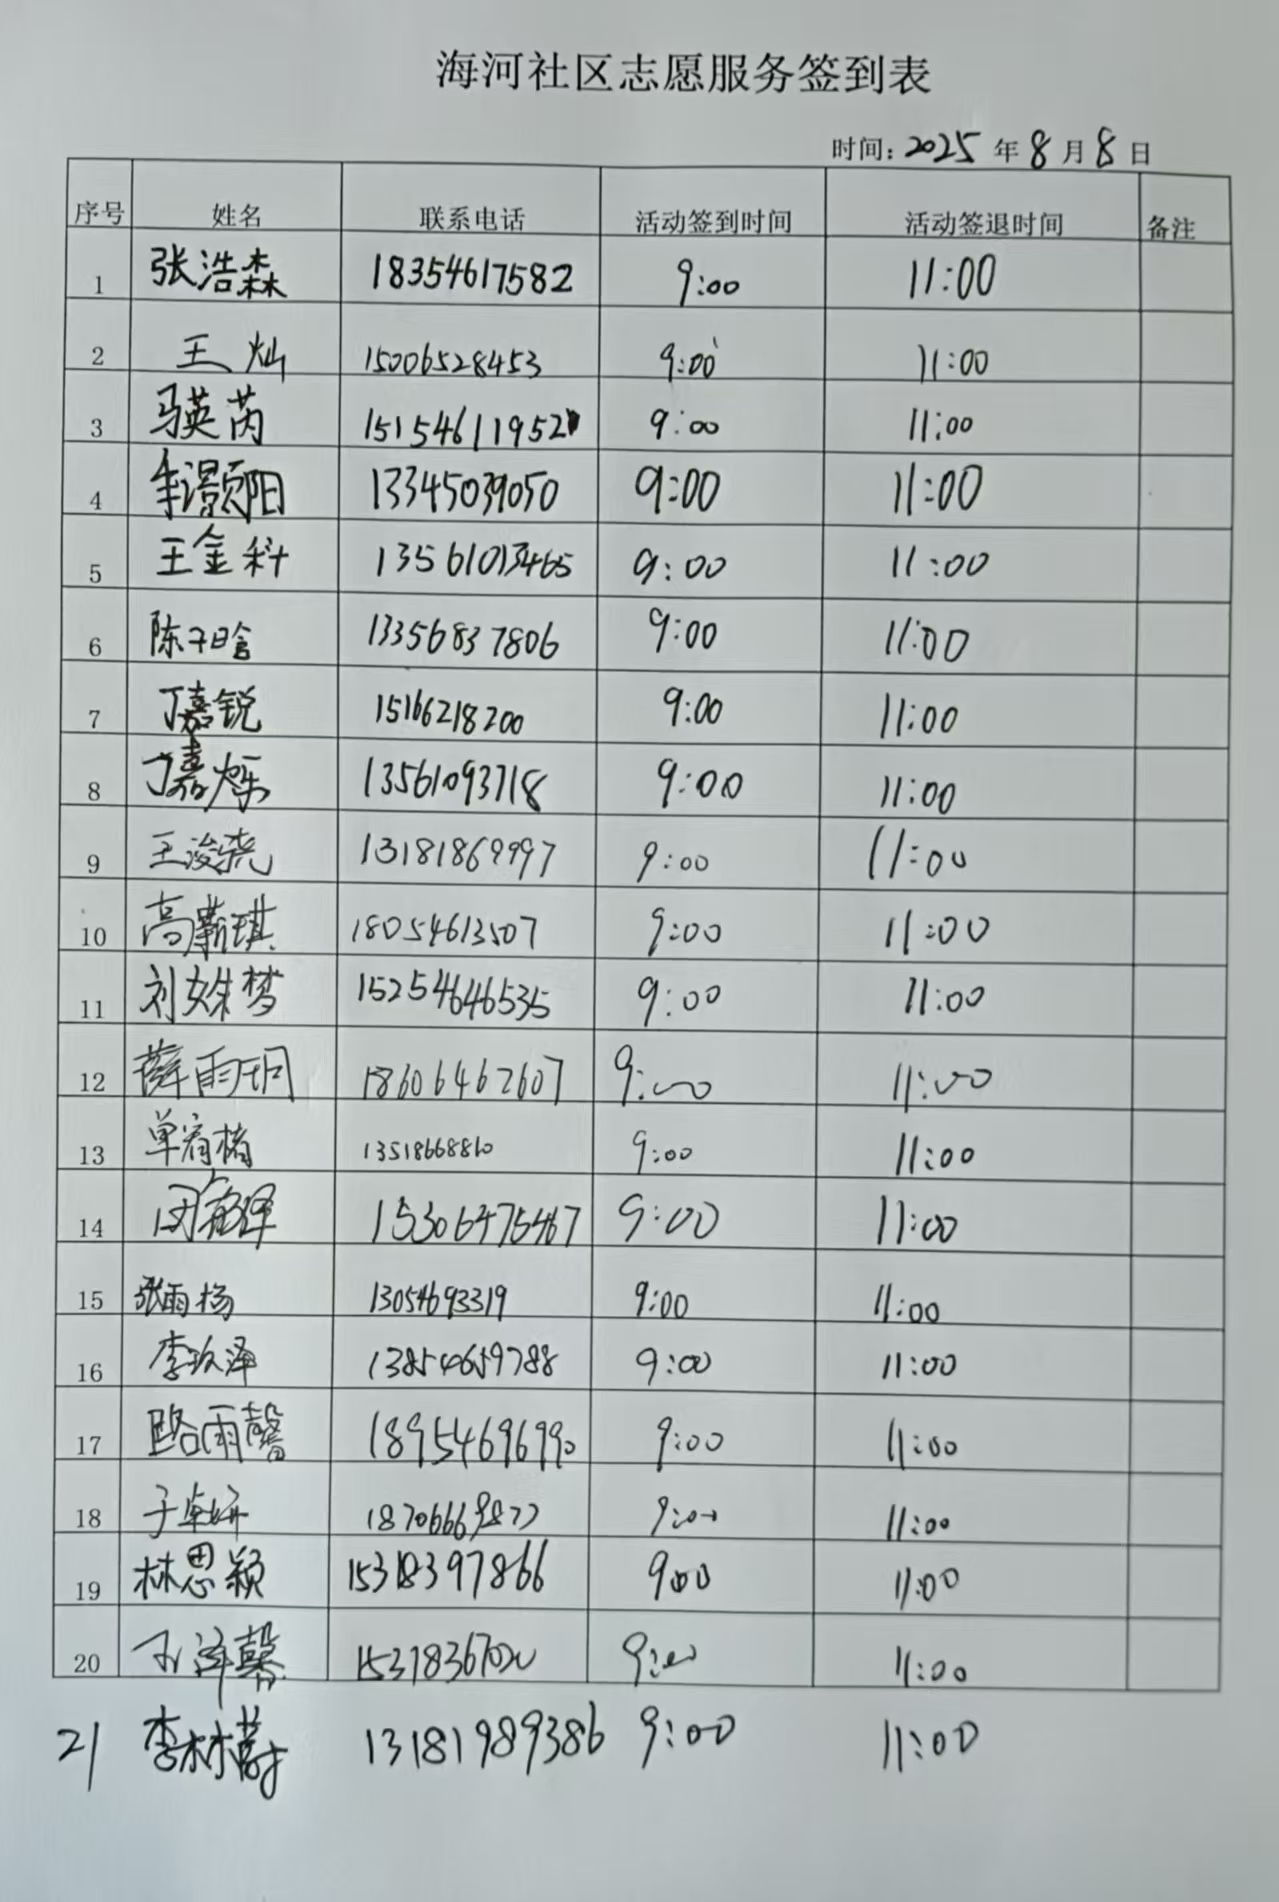 海河社区志愿服务签到表
时间：2025 年 8 月 8 日
序号 姓名 联系电话 活动签到时间 活动签退时间 备注
1 张浩森 18354617582 9:00 11:00
2 王灿 15006528453 9:00 11:00
3 马英芮 15154611952 9:00 11:00
4 李灏阳 13345039050 9:00 11:00
5 王金科 13561013465 9:00 11:00
6 陈子晗 13356837806 9:00 11:00
7 丁嘉锐 15166218200 9:00 11:00
8 丁嘉烁 13561093718 9:00 11:00
9 王浚尧 13181869997 9:00 11:00
10 高靳琪 18054613507 9:00 11:00
11 刘姝梦 15254646535 9:00 11:00
12 薛雨玥 18606462607 9:00 11:00
13 单宥楮 13518668810 9:00 11:00
14 15306475467 9:00 11:00
15 张雨杨 13054693319 9:00 11:00
16 李玖泽 13854659788 9:00 11:00
17 路雨馨 18954696990 9:00 11:00
18 于卓妍 9:00 11:00
19 林思颖 15318397866 9:00 11:00
20 泽馨 9:00 11:00
21 李林蔚 13181989386 9:00 11:00